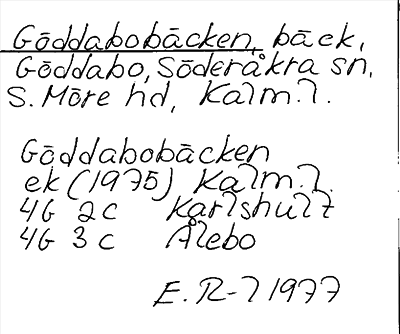 Göddabobäcken, bäck,
Göddabo, Söderåkra sn,
S. Möre hd, Kalm.l.
Göddabobäcken
ek (1975) Kalm.l.
4G 2c Karlshult
4G 3c Ålebo
E. R-l 1977